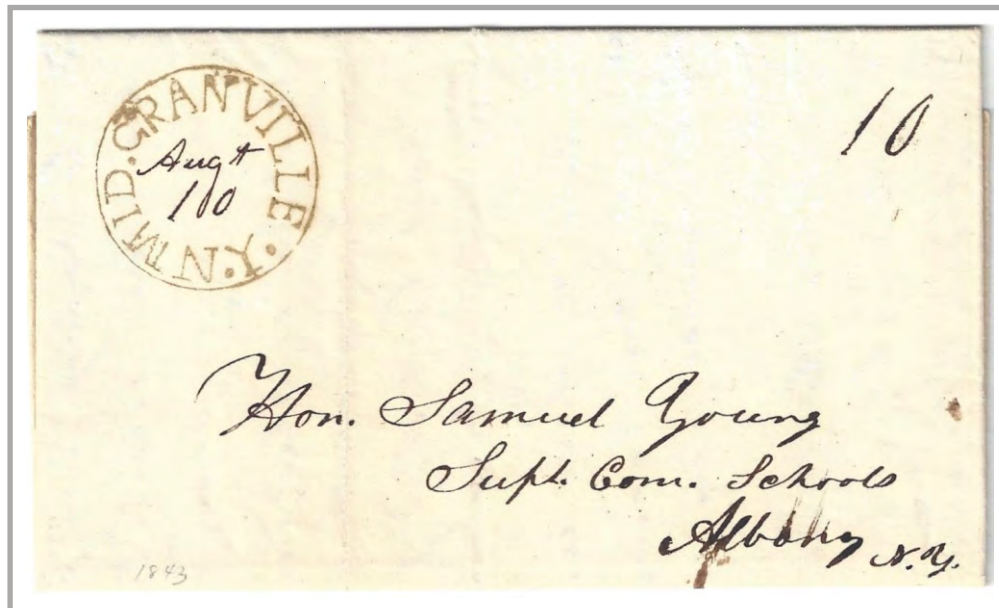 MID. GRANVILLE. N.Y.
Augt
10
10
Hon. Samuel Young
Supt. Com. Schools
Albany N.Y.
1843